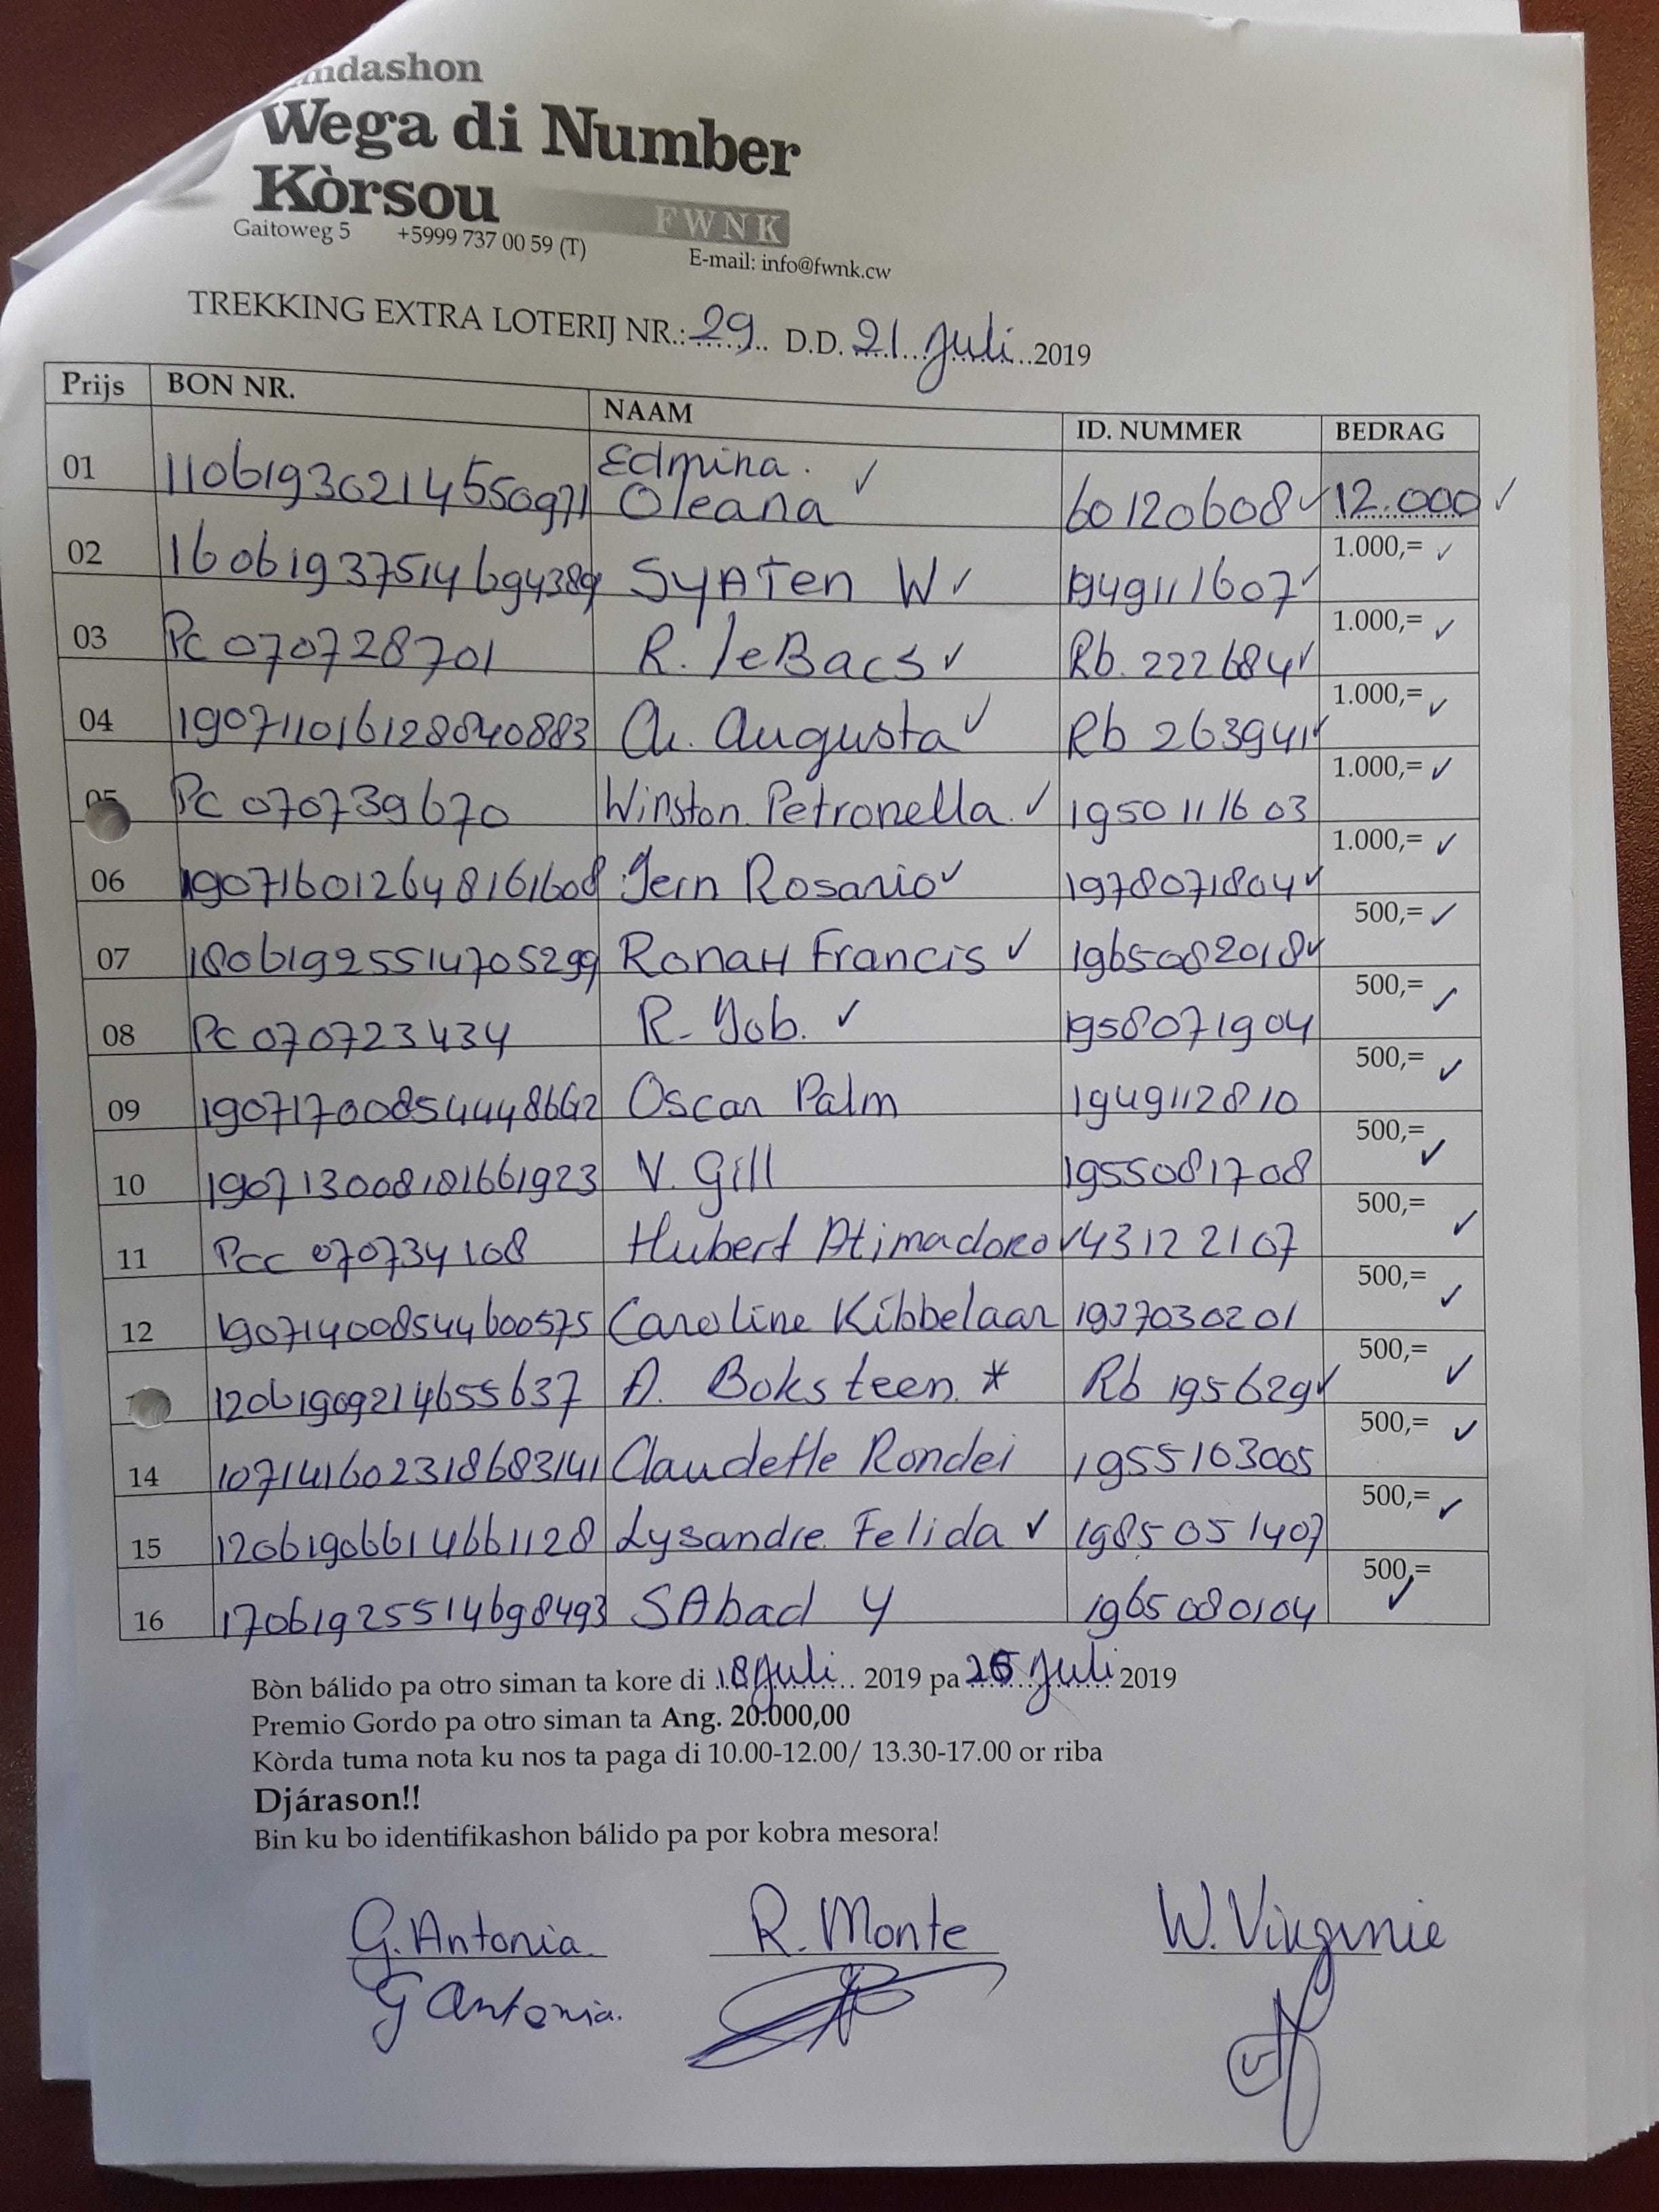 ndashon
Wega di Number
Kòrsou
FWNK
Gaitoweg 5 +5999 737 00 59 (T)
E-mail: info@fwnk.cw
TREKKING EXTRA LOTERIJ NR.: 29 D.D. 21 Juli 2019
Prijs BON NR. NAAM ID. NUMMER BEDRAG
01 1106193021455097 Edmina. ✓
Oleana 60120608 ✓ 12.000 ✓
02 16061937514694389 SyATen W ✓ 1949111607 ✓ 1.000,= ✓
03 Pc 070728701 R. leBacs ✓ Rb. 222684 ✓ 1.000,= ✓
04 190711016128040883 A. Augusta ✓ Rb 263941 ✓ 1.000,= ✓
05 Pc 070739670 Winston Petronella. ✓ 1950111603 1.000,= ✓
06 190716012648161608 Jern Rosario ✓ 1978071804 ✓ 1.000,= ✓
07 18061925514705299 Ronah Francis ✓ 1965082018 ✓ 500,= ✓
08 Pc 070723434 R. Job. ✓ 1958071904 500,= ✓
09 19071700854448662 Oscar Palm 1949112810 500,= ✓
10 190713008181661923 V. Gill 1955081708 500,= ✓
11 Pcc 070734108 Hubert Atimadoro ✓ 43122107 500,= ✓
12 190714008544600575 Caroline Kibbelaar 1977030201 500,= ✓
12061909214655637 A. Boksteen * Rb 195629 ✓ 500,= ✓
14 107141602318683141 Claudette Rondei 1955103005 500,= ✓
15 12061906614661128 Lysandre Felida ✓ 1985051407 500,= ✓
16 17061925514698493 SAbad Y 1965080104 500,= ✓
Bòn bálido pa otro siman ta kore di 18 Juli 2019 pa 25 Juli 2019
Premio Gordo pa otro siman ta Ang. 20.000,00
Kòrda tuma nota ku nos ta paga di 10.00-12.00/ 13.30-17.00 or riba
Djárason!!
Bin ku bo identifikashon bálido pa por kobra mesora!
G. Antonia R. Monte W. Virginie
G Antonia.